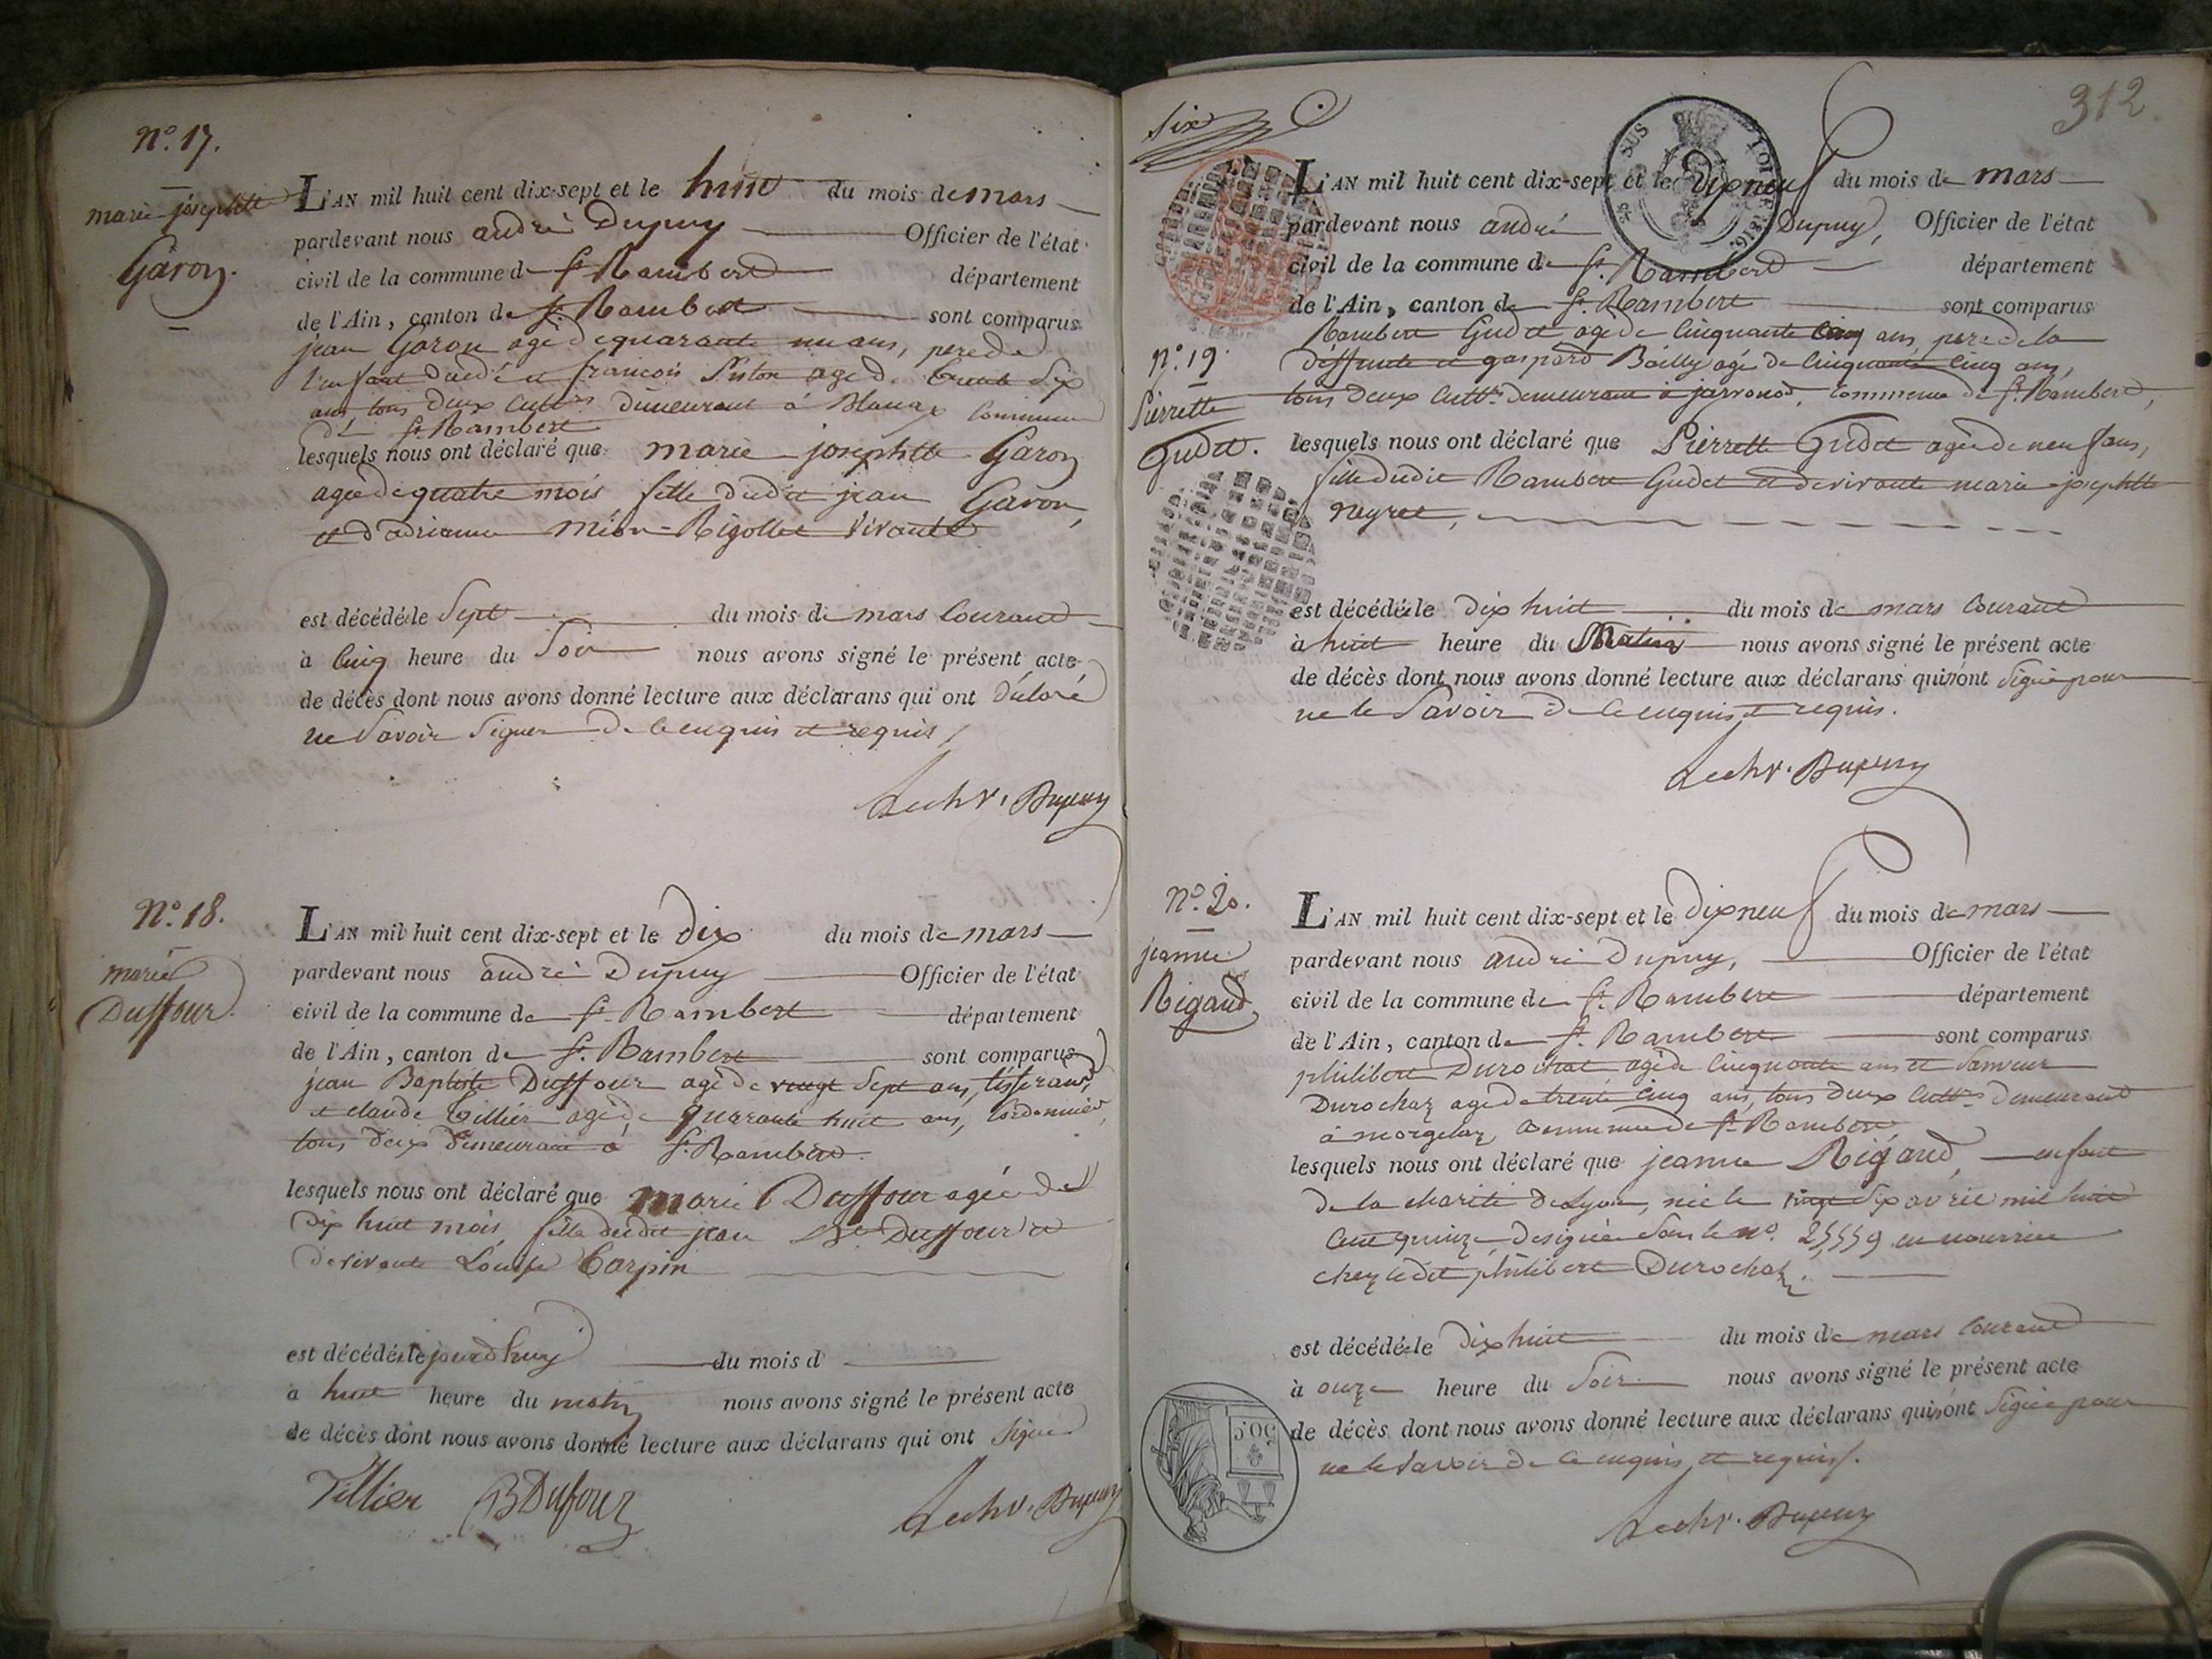 N.º 17.
marie josephtte
Garon.
L'AN mil huit cent dix-sept et le huit du mois de mars
pardevant nous andré Dupuy Officier de l'état
civil de la commune de St. Rambert département
de l'Ain, canton de St. Rambert sont comparus
jean Garon agé de quarante un ans, pere de
l'enfant dudé et francois Piston agé de trente six
ans tous deux cultrs demeurant à Blanaz commune
de St. Rambert
lesquels nous ont déclaré que marie josephtte Garon
agée de quatre mois fille dudit jean Garon,
et d'adrianne Mion-Rigollet vivante
est décédée le sept du mois de mars courant
à cinq heure du soir nous avons signé le présent acte
de décès dont nous avons donné lecture aux déclarans qui ont déclaré
ne savoir signer de ce enquis et requis,
Dupuy
N.º 18.
marie
Duffour.
L'AN mil huit cent dix-sept et le dix du mois de mars
pardevant nous andré Dupuy Officier de l'état
civil de la commune de St. Rambert département
de l'Ain, canton de St. Rambert sont comparus
jean Baptiste Duffour agé de vingt sept ans, tisserand,
et claude Tillier agé de quarante huit ans, Cordonnier,
tous deux demeurant à St. Rambert.
lesquels nous ont déclaré que marie Duffour agée de
dix huit mois, fille dudit jean Bte Duffour et
de vivante Louise Carpin
est décédée le jourd'huy du mois d
à huit heure du matin nous avons signé le présent acte
de décès dont nous avons donné lecture aux déclarans qui ont signé
Tillier B Dufour Dupuy
312
six
SUS TOIT 1816.
L'AN mil huit cent dix-sept et le dix neuf du mois de mars
pardevant nous andré Dupuy, Officier de l'état
civil de la commune de St. Rambert département
de l'Ain, canton de St. Rambert sont comparus
N.º 19.
Pierrette
Gudet.
Rambert Gudet agé de cinquante cinq ans, pere de la
deffunte et gaspard Bailly agé de cinquante cinq ans,
tous deux cultrs demeurant à javronod, commune de St. Rambert,
lesquels nous ont déclaré que Pierrette Gudet agée de neuf ans,
fille dudit Rambert Gudet et de vivante marie josephtte
neyret,
est décédée le dix huit du mois de mars courant
à huit heure du Matin nous avons signé le présent acte
de décès dont nous avons donné lecture aux déclarans qui n'ont signé pour
ne le savoir de ce enquis et requis.
Dupuy
N.º 20.
jeanne
Rigaud
L'AN mil huit cent dix-sept et le dix neuf du mois de mars
pardevant nous andré Dupuy, Officier de l'état
civil de la commune de St. Rambert département
de l'Ain, canton de St. Rambert sont comparus
philibert Durochat agé de cinquante ans et
Durochaz agé de trente cinq ans, tous deux cultrs demeurant
à morgelaz commune de St. Rambert,
lesquels nous ont déclaré que jeanne Rigaud, enfant
de la charité de Lyon, née le vingt six avril mil huit
cent quinze, designée sous le no. 25559 en nourrice
chez ledit philibert Durochaz.
est décédée le dix huit du mois de mars courant
à onze heure du soir nous avons signé le présent acte
de décès dont nous avons donné lecture aux déclarans qui n'ont signé pour
ne le savoir de ce enquis et requis.
50.C
Dupuy